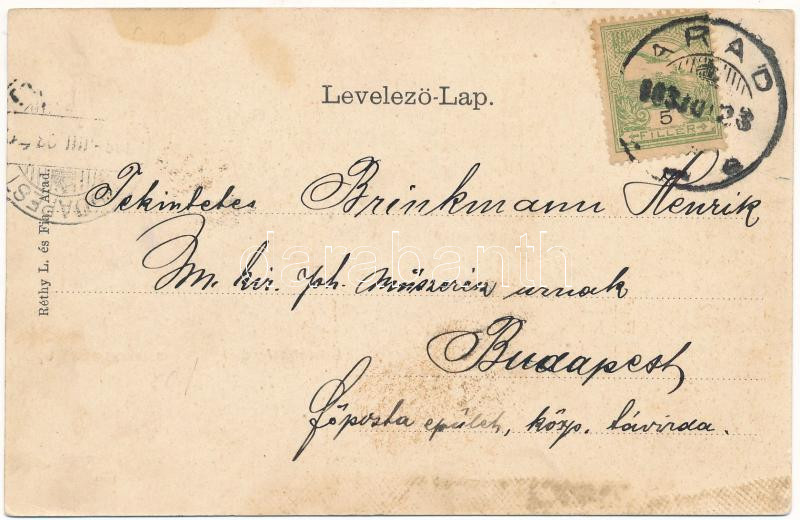 Levelező-Lap.
ARAD
903 JUL 23
5
FILLÉR
Tekintetes Brinkmann Henrik
M. kir. ph. műszerész urnak
Budapest
főposta épület, közp. távirda.
Réthy L. és Fia, Arad.
darabanth